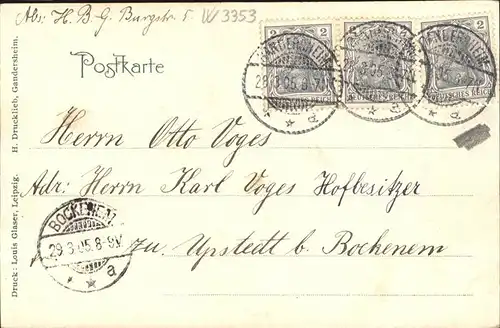 Abs: H. B. G. Burgstr. 5 W 3353
Postkarte
2 2 2 2 2
DEUTSCHES REICH
GANDERSHEIM
29.3.05. 8-9V.
a
Herrn Otto Voges
Adr: Herrn Karl Voges Hofbesitzer
zu. Upstedt b. Bockenem
BOCKENEM
29.3.05. 8-9V.
a
H. Drucklieb, Gandersheim.
Druck: Louis Glaser, Leipzig.